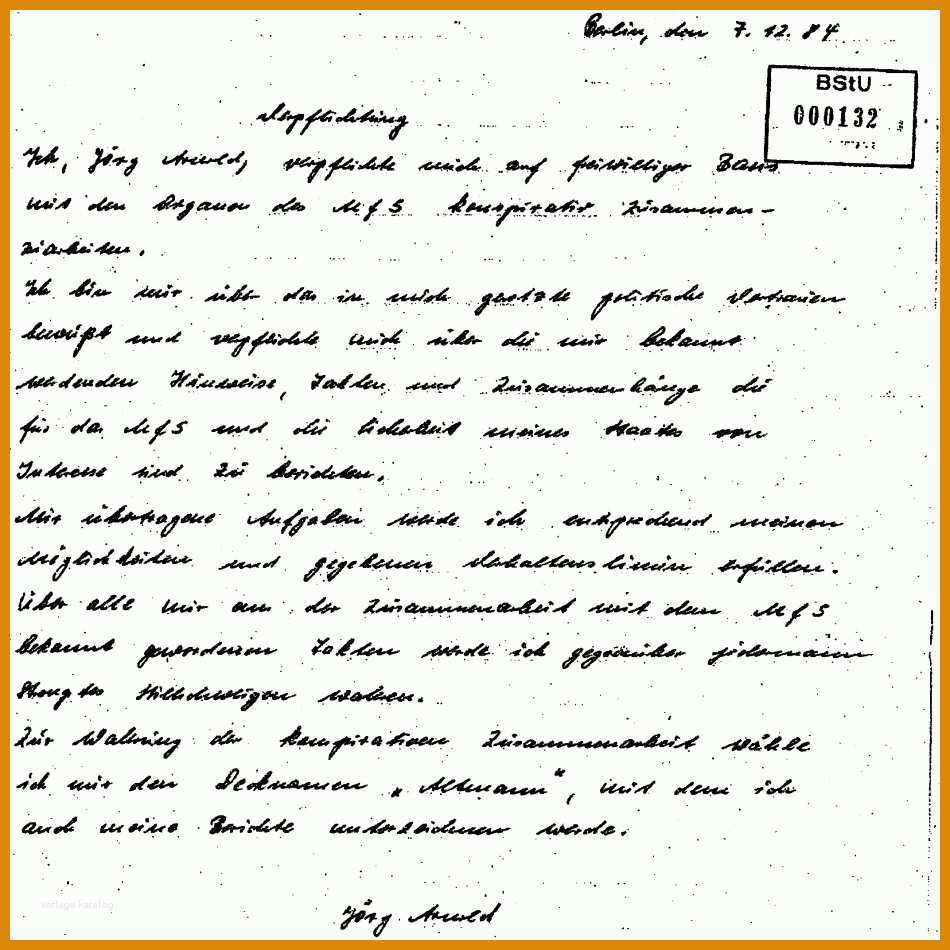 Berlin, den 7.12.84
BStU
000132
Verpflichtung
Ich, Jörg Arnold, verpflichte mich auf freiwilliger Basis
mit den Organen des MfS konspirativ zusammen-
zuarbeiten.
Ich bin mir über das in mich gesetzte politische Vertrauen
bewußt und verpflichte mich über die mir bekannt
werdenden Hinweise, Fakten und Zusammenhänge die
für das MfS und die Sicherheit meines Staates von
Interesse sind zu berichten.
Mir übertragene Aufgaben werde ich entsprechend meinen
Möglichkeiten und gegebenen Verhaltenslinien erfüllen.
Über alle mir aus der Zusammenarbeit mit dem MfS
bekannt gewordenen Fakten werde ich gegenüber jedermann
strengstes Stillschweigen wahren.
Zur Wahrung der konspirativen Zusammenarbeit wähle
ich mir den Decknamen „Altmann", mit dem ich
auch meine Berichte unterzeichnen werde.
vorlage katalog
Jörg Arnold